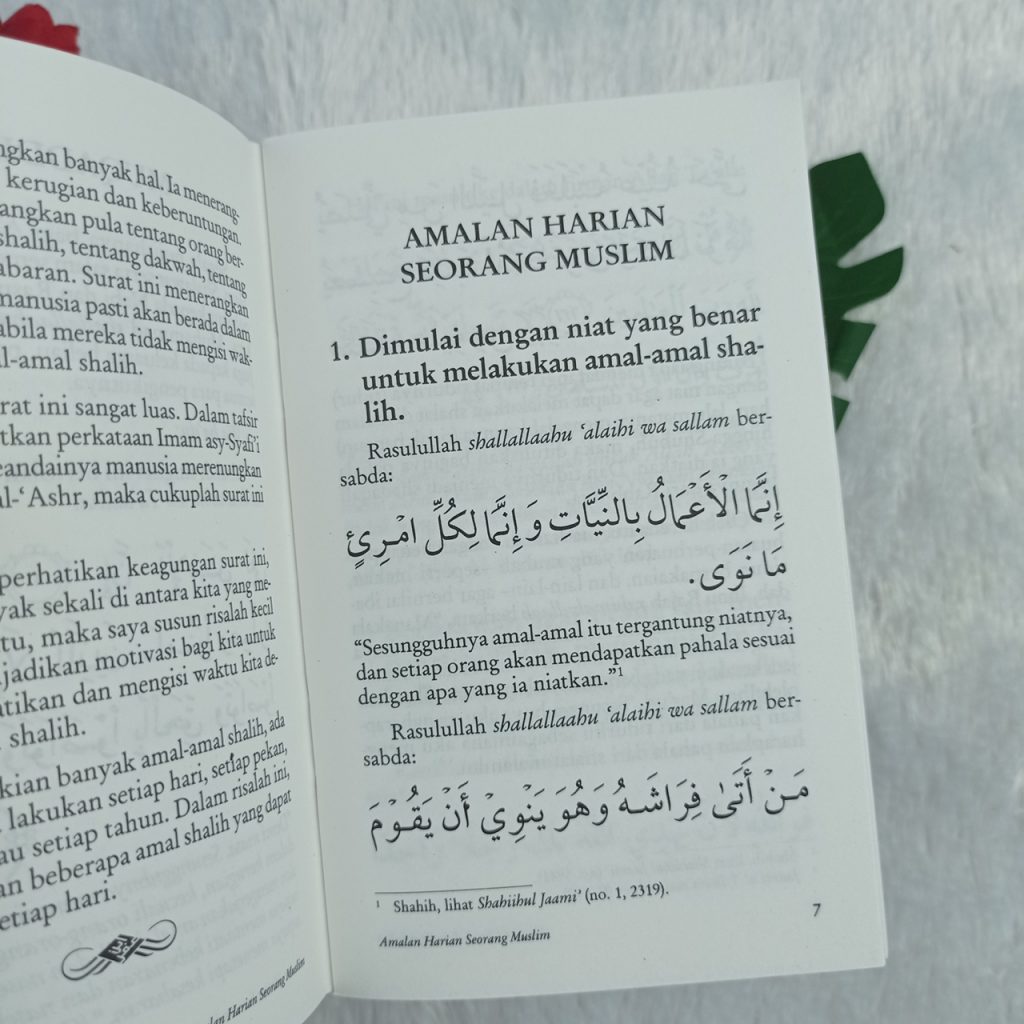 ngkan banyak hal. Ia menerang-
kerugian dan keberuntungan.
angkan pula tentang orang ber-
shalih, tentang dakwah, tentang
abaran. Surat ini menerangkan
manusia pasti akan berada dalam
abila mereka tidak mengisi wak-
l-amal shalih.
rat ini sangat luas. Dalam tafsir
tkan perkataan Imam asy-Syafi'i
eandainya manusia merenungkan
al-'Ashr, maka cukuplah surat ini
perhatikan keagungan surat ini,
yak sekali di antara kita yang me-
tu, maka saya susun risalah kecil
jadikan motivasi bagi kita untuk
atikan dan mengisi waktu kita de-
shalih.
kian banyak amal-amal shalih, ada
lakukan setiap hari, setiap pekan,
au setiap tahun. Dalam risalah ini,
an beberapa amal shalih yang dapat
etiap hari.
lan Harian Seorang Muslim
AMALAN HARIAN
SEORANG MUSLIM
1. Dimulai dengan niat yang benar
untuk melakukan amal-amal sha-
lih.
Rasulullah shallallaahu 'alaihi wa sallam ber-
sabda:
إِنَّمَا الْأَعْمَالُ بِالنِّيَّاتِ وَإِنَّمَا لِكُلِّ امْرِئٍ
مَا نَوَى.
“Sesungguhnya amal-amal itu tergantung niatnya,
dan setiap orang akan mendapatkan pahala sesuai
dengan apa yang ia niatkan.”1
Rasulullah shallallaahu 'alaihi wa sallam ber-
sabda:
مَنْ أَتَى فِرَاشَهُ وَهُوَ يَنْوِيْ أَنْ يَقُوْمَ
1 Shahih, lihat Shahiihul Jaami' (no. 1, 2319).
Amalan Harian Seorang Muslim
7